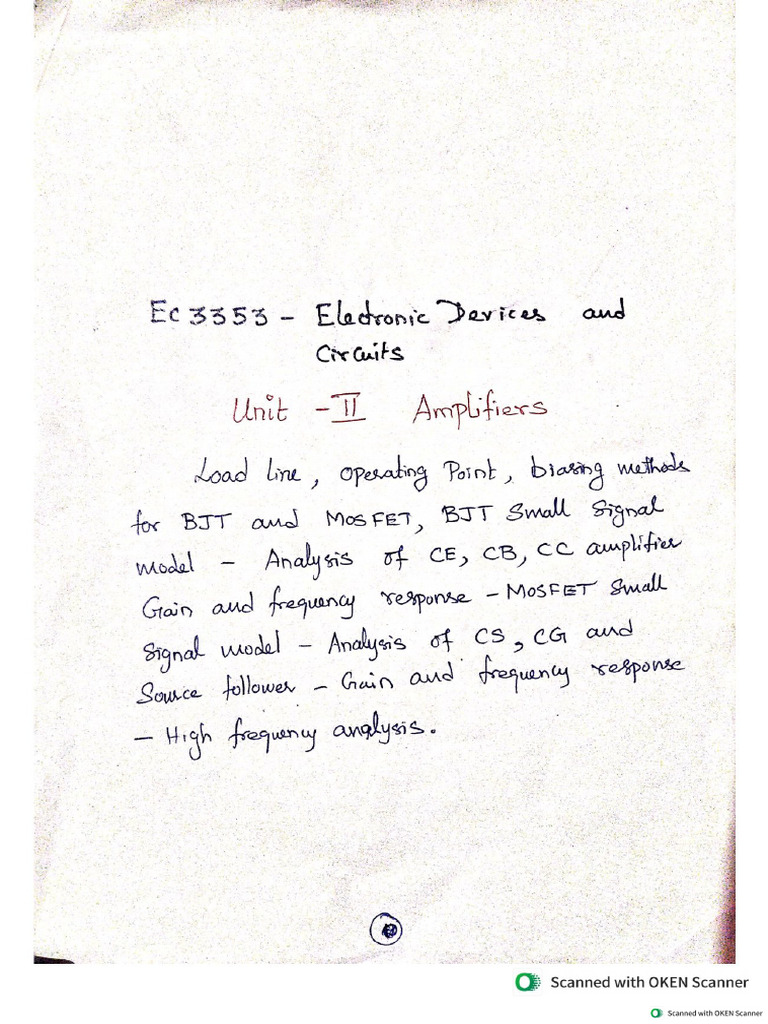 EC 3353 - Electronic Devices and
Circuits
Unit - II Amplifiers
Load line, operating Point, biasing methods
for BJT and MOSFET, BJT Small Signal
model - Analysis of CE, CB, CC amplifier
Gain and frequency response - MOSFET Small
Signal model - Analysis of CS, CG and
Source follower - Gain and frequency response
- High frequency analysis.
Scanned with OKEN Scanner
Scanned with OKEN Scanner